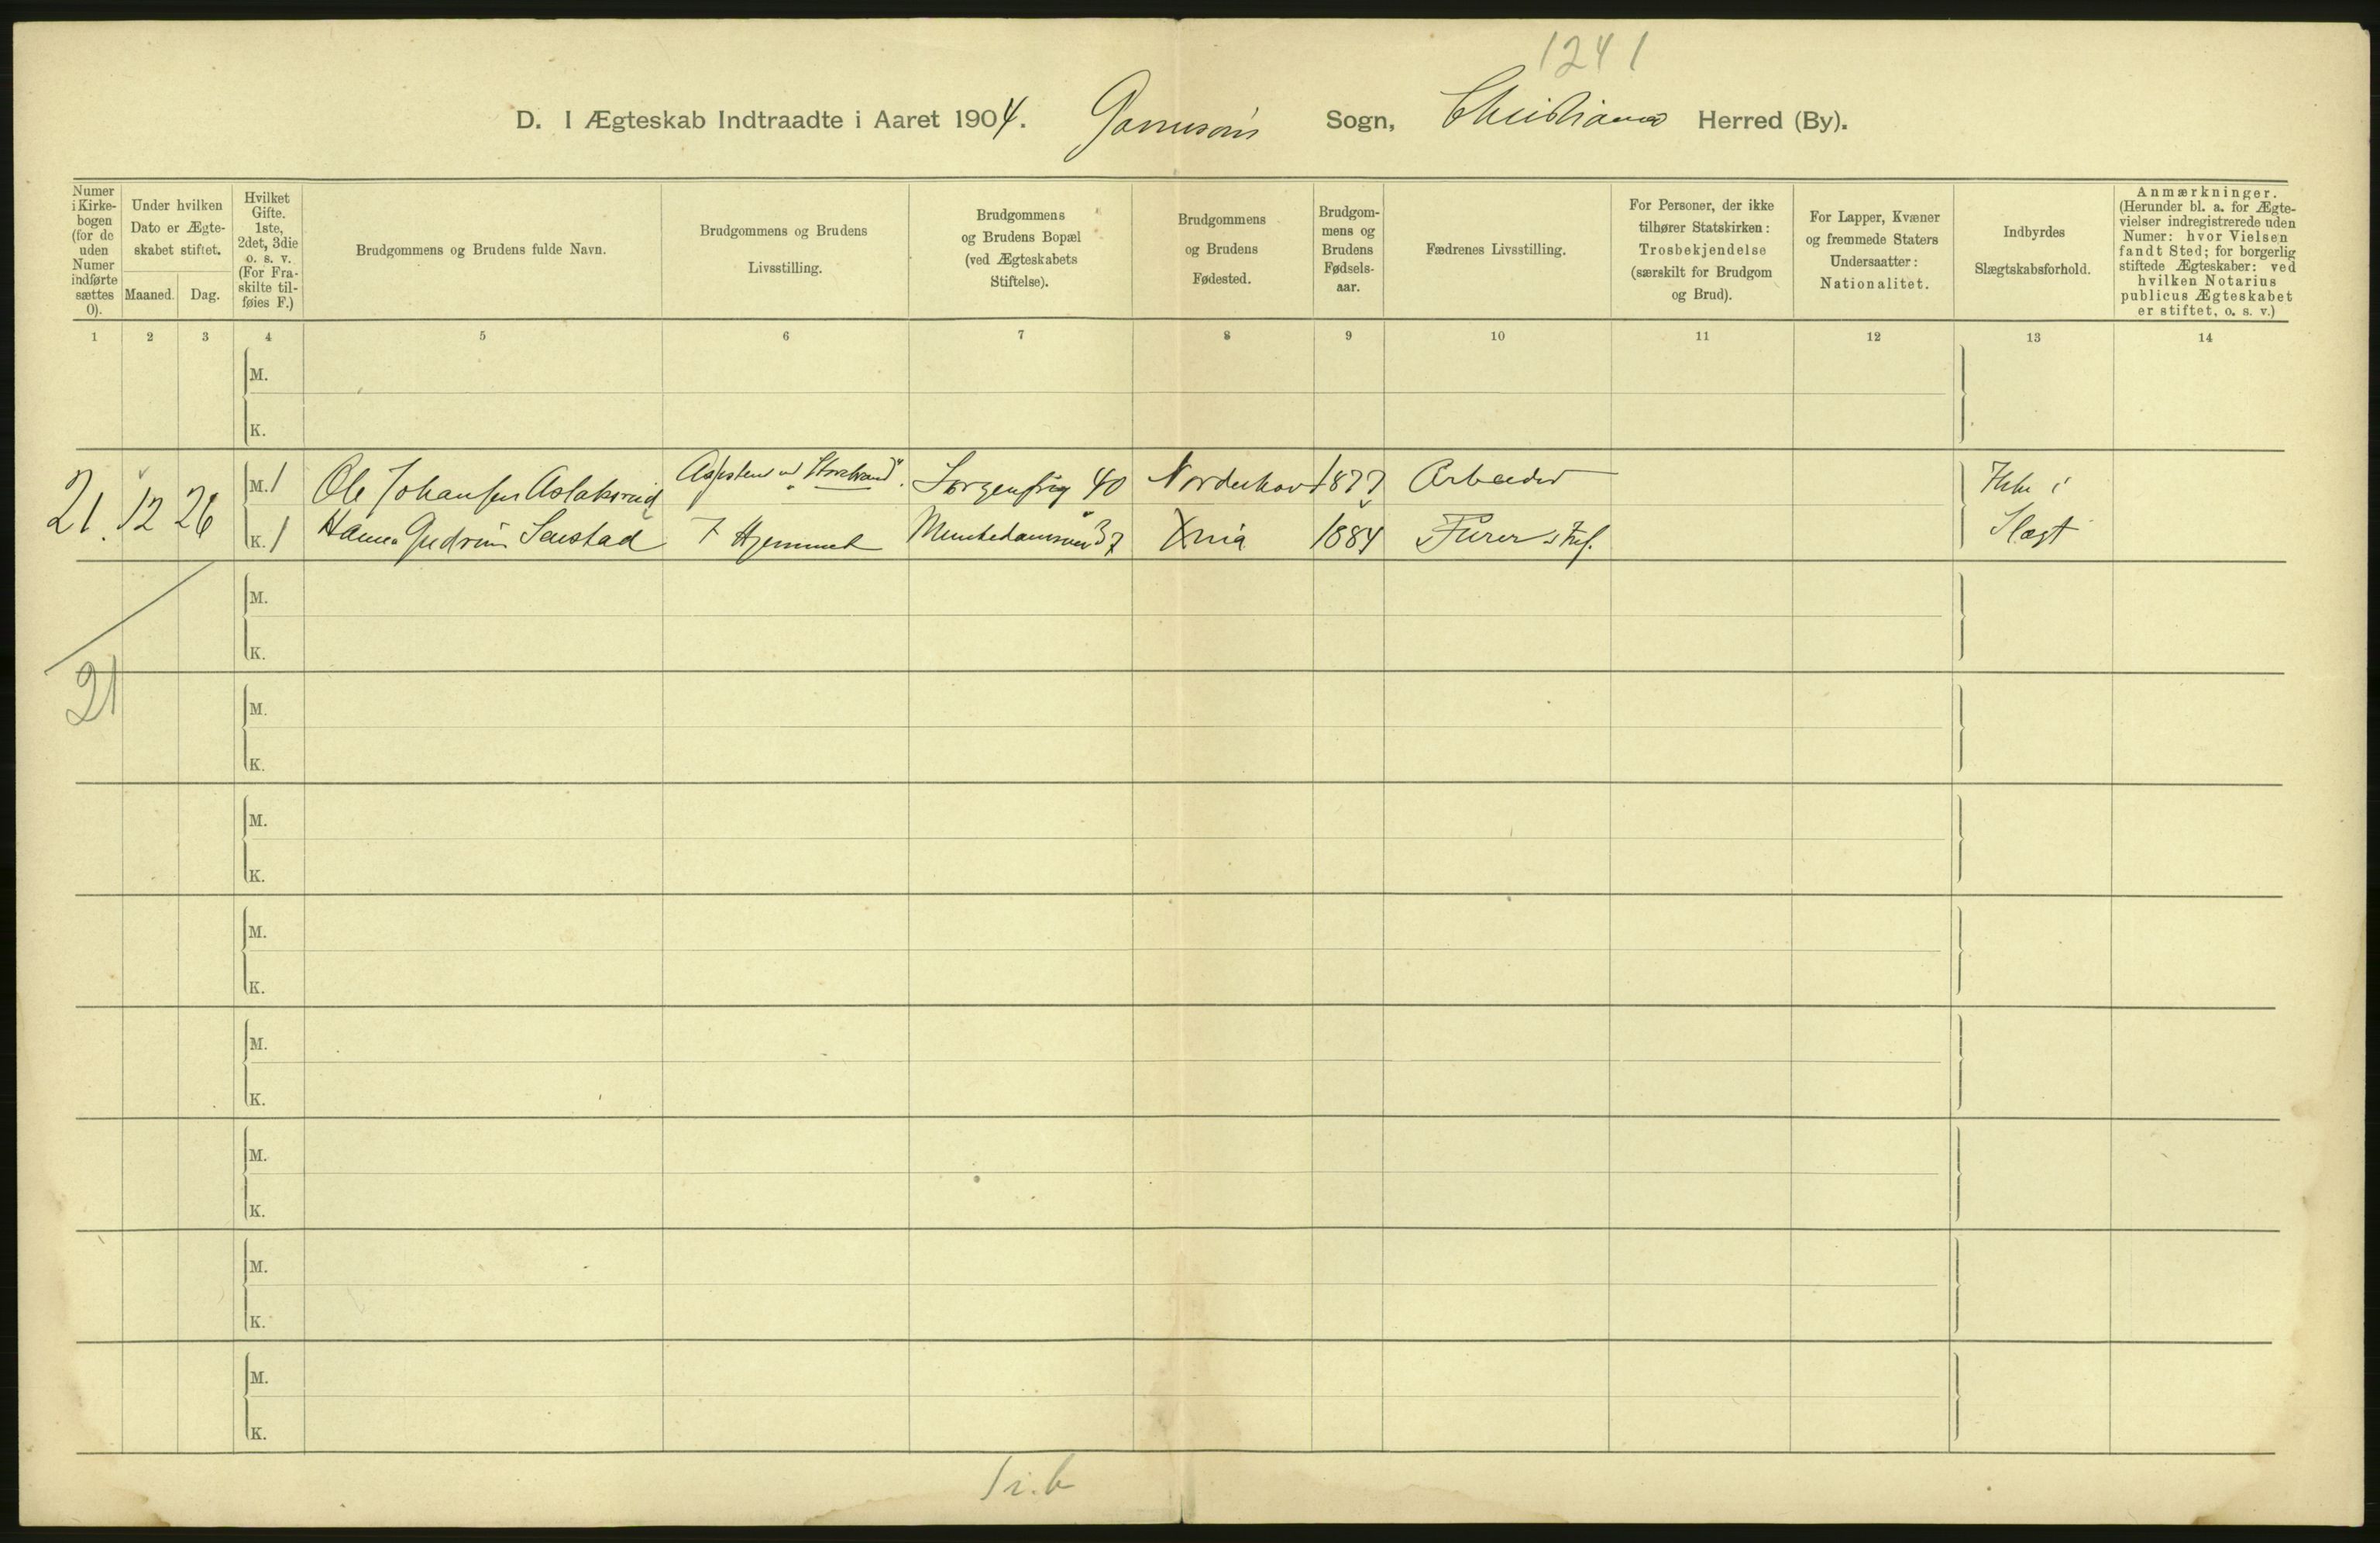 1241
D. I Ægteskab Indtraadte i Aaret 1904. Garnisons Sogn, Christiania Herred (By).
Numer i Kirke- bogen (for de uden Numer indførte sættes 0).
Under hvilken Dato er Ægte- skabet stiftet.
Maaned. Dag.
Hvilket Gifte. 1ste, 2det, 3die o. s. v. (For Fra- skilte til- føies F.)
Brudgommens og Brudens fulde Navn.
Brudgommens og Brudens Livsstilling.
Brudgommens og Brudens Bopæl (ved Ægteskabets Stiftelse).
Brudgommens og Brudens Fødested.
Brudgom- mens og Brudens Fødsels- aar.
Fædrenes Livsstilling.
For Personer, der ikke tilhører Statskirken: Trosbekjendelse (særskilt for Brudgom og Brud).
For Lapper, Kvæner og fremmede Staters Undersaatter: Nationalitet.
Indbyrdes Slægtskabsforhold.
Anmærkninger. (Herunder bl. a. for Ægte- vielser indregistrerede uden Numer: hvor Vielsen fandt Sted; for borgerlig stiftede Ægteskaber: ved hvilken Notarius publicus Ægteskabet er stiftet, o. s. v.)
1 2 3 4 5 6 7 8 9 10 11 12 13 14
M.
K.
21. 12 26
M. 1 Ole Johansen Aslaksrud Assistent v "Storebrand". Sorgenfrig 40 Norderhov 1877 Arbeider Ikke i
K. 1 Hanna Gudrun Senstad I Hjemmet Munkedamsvn 37 Xnia 1884 Furer Slægt
M.
K.
21
M.
K.
M.
K.
M.
K.
M.
K.
M.
K.
M.
K.
M.
K.